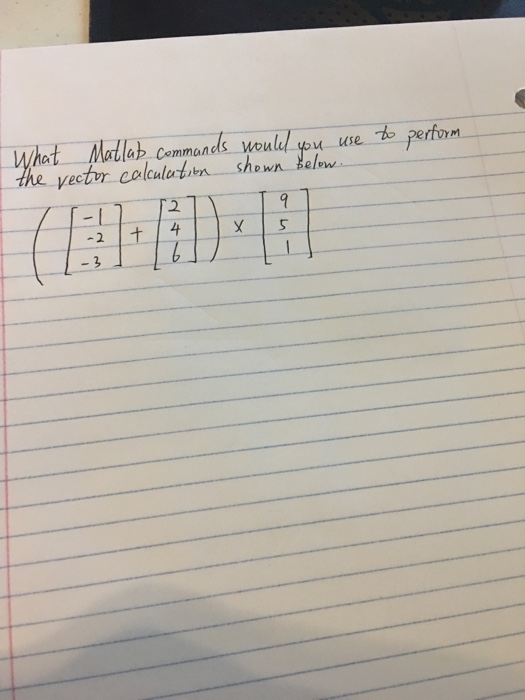 What Matlab commands would you use to perform
the vector calculation shown below.
([-1 -2 -3] + [2 4 6]) × [9 5 1]